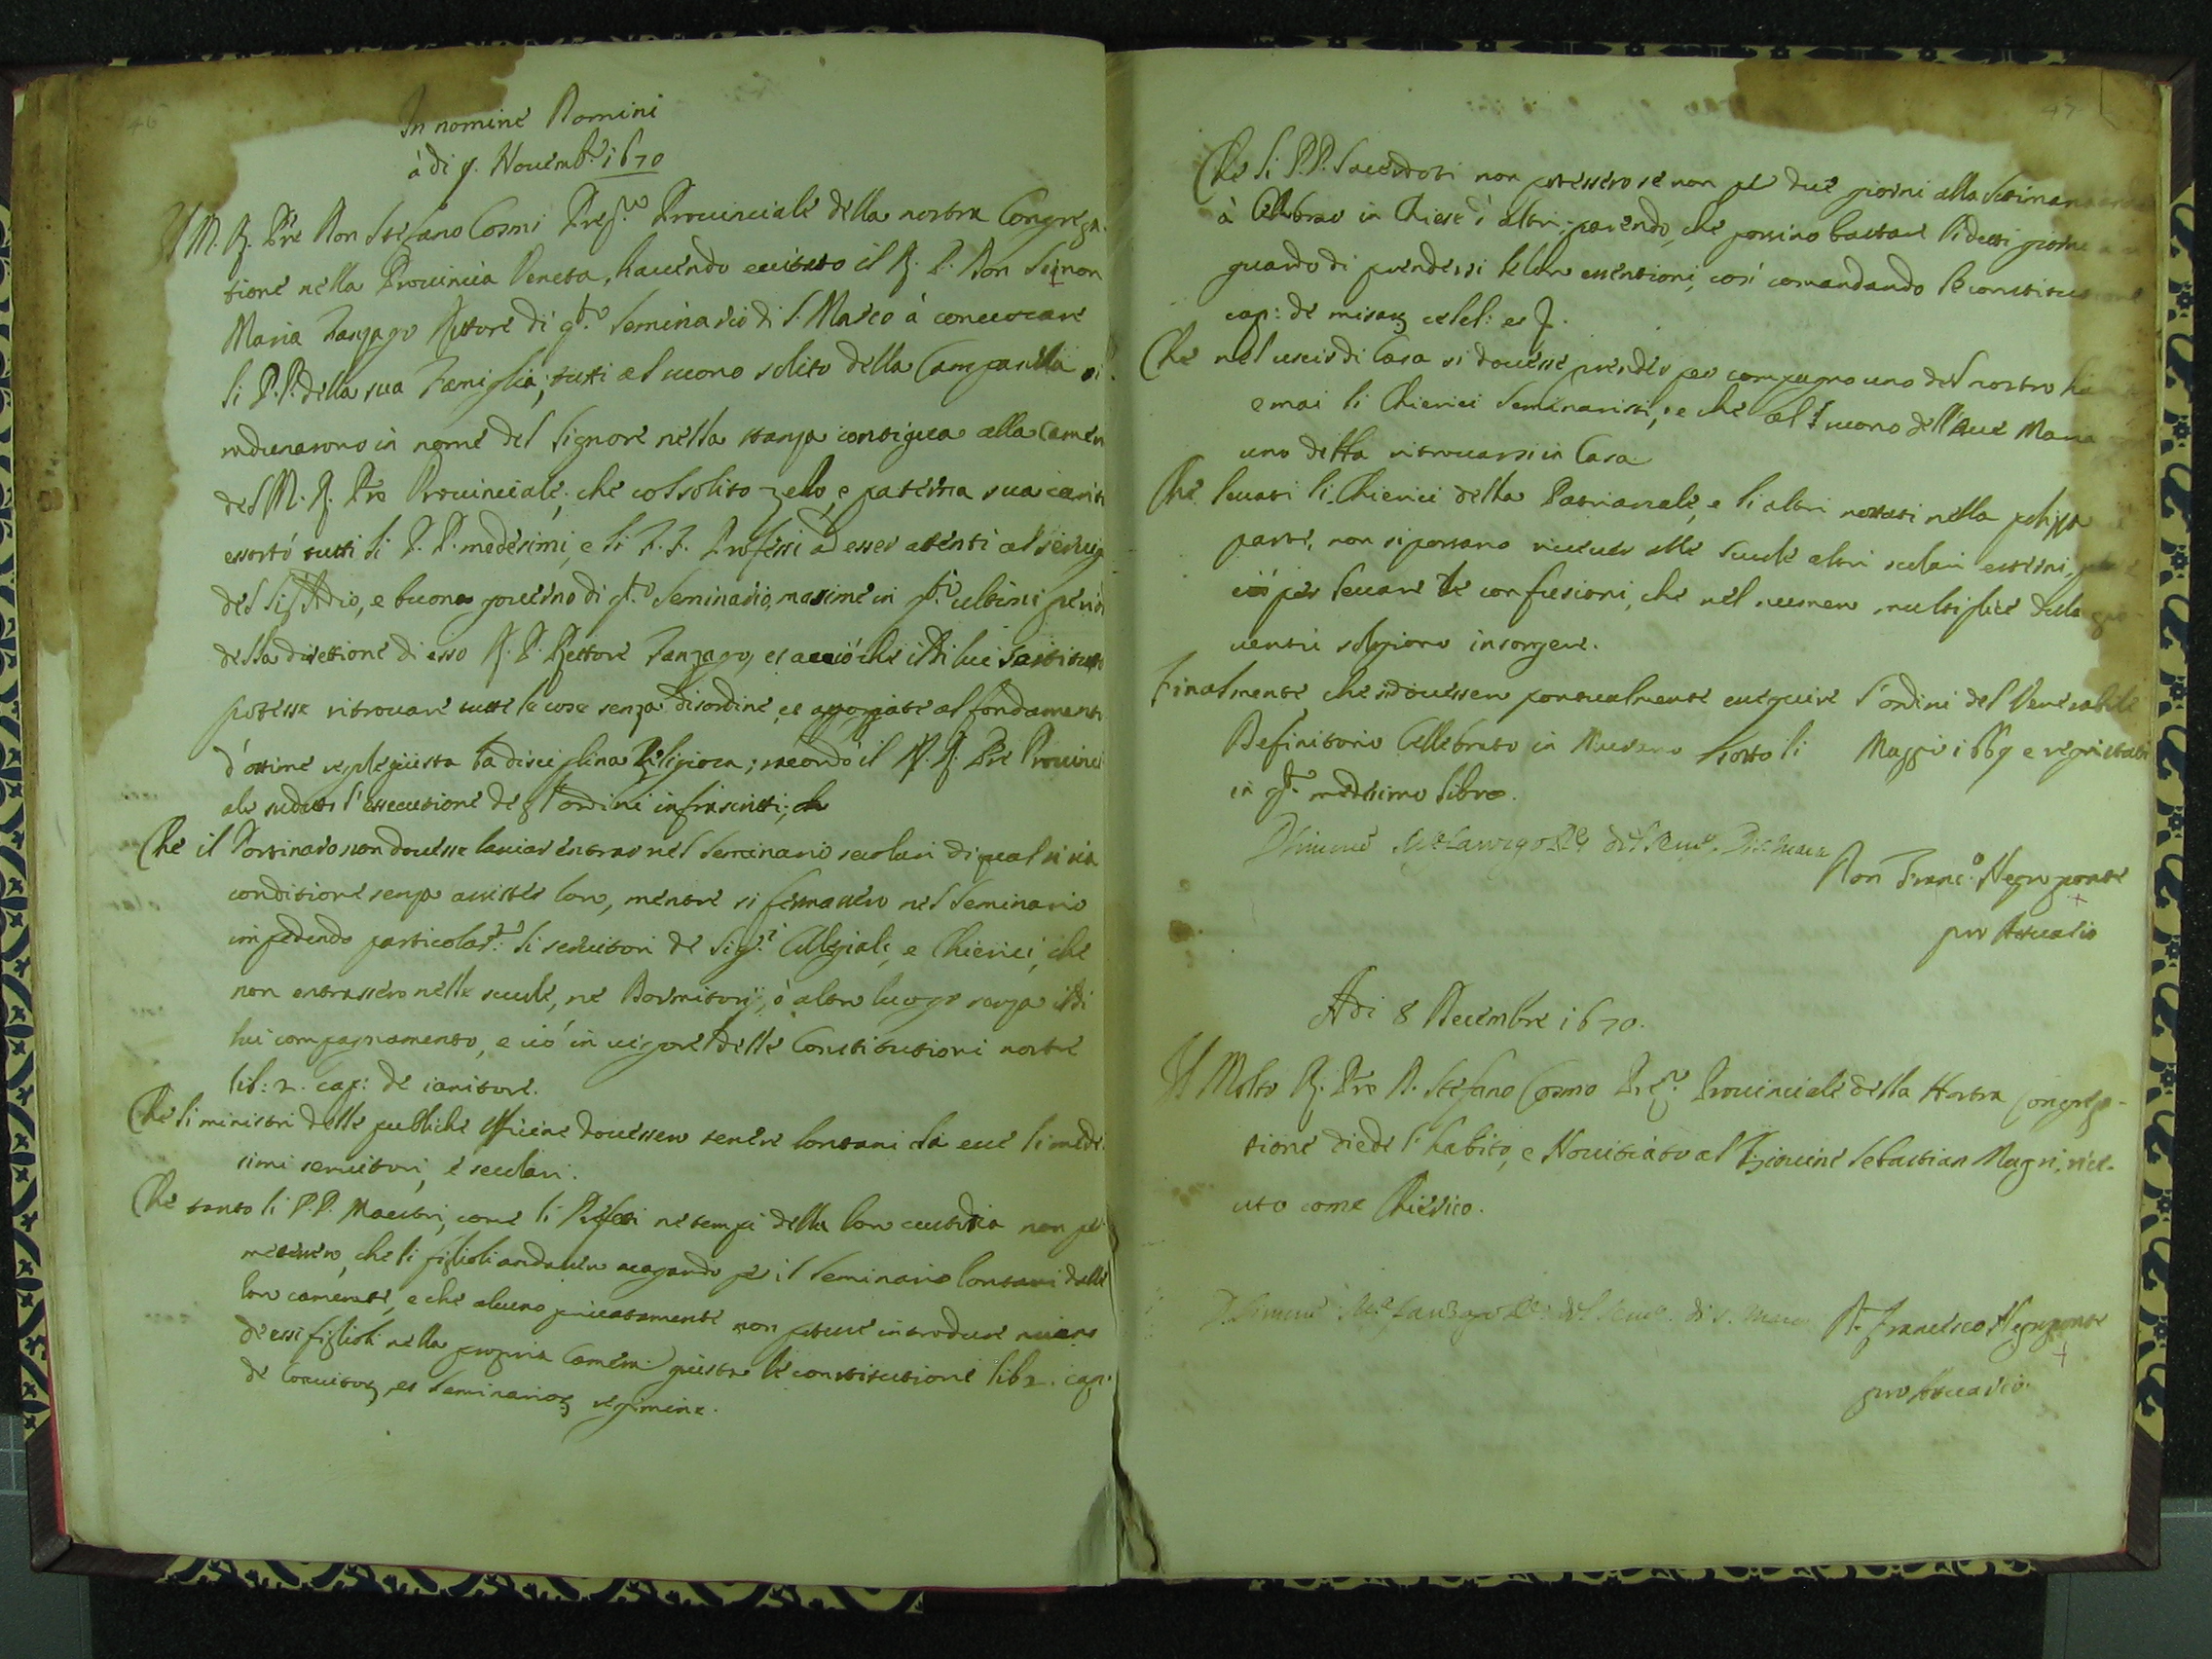 46
In nomine Domini
à di 9. Nouemb.e 1670
Il M. R. Pre Don Stefano Cosmi Prep.to Prouinciale della nostra Congrega-
tione nella Prouincia Veneta, hauendo eccitato il R. P. Don Simon
Maria Zanzago Rettore di q.to Seminario di S. Marco à conuocare
li P.P. della sua Famiglia; tutti al suono solito della Campanella si
radunarono in nome del Signore nella stanza contigua alla Camera
del M. R. Pre Prouinciale; che col solito zelo, e paterna sua carità
essortò tutti li P. P. medesimi, e li F. F. Professi ad esser attenti al seruig
del Sig.r Iddio, e buono gouerno di q.to Seminario, massime in q.ti ultimi periodi
della direttione di esso R. P. Rettore Zanzago, et acciò che il di lui sostituto
potesse ritrouare tutte le cose senza disordine et appoggiate al fondamento
d'ottime regole giusta la disciplina Religiosa; racordò il M. R. Pre Prouinci
ale sudetto l'essecutione de gl'ordini infrascritti;
Che il Portinaro non douesse lasciar entrar nel Seminario secolari di qual si sia
conditione senza assister loro, mentre si fermassero nel Seminario
impedendo particolar.te li seruitori de Sig.ri Collegiali, e Chierici, che
non entrassero nelle scuole, ne Dormitorij, ò altro luogo senza il di
lui compagnamento, e ciò in uigore delle Constitutioni nostre
lib: 2. cap: de ianitore.
Che li ministri delle publiche officine douessero tenere lontani da esse li mede-
simi seruitori, e secolari.
Che tanto li P.P. Maestri, come li Prefetti ne tempi della loro custodia non per
mettessero, che li figlioli andassero uagando per il Seminario lontani dalle
loro camerate, e che alcuno priuatamente non potesse introdurre niuno
de essi figlioli nella propria Camera giusta le constitutioni lib 2. cap.
de Conuitor. et Seminarior. regimine.
47
Che li P.P. Sacerdoti non potessero se non per due giorni alla Settimana
à Cellebrar in Chiese d'altri; parendo, che possino bastare li detti giorni a
guardo di prendersi le loro essentioni, così comandando le constitutioni
cap: de missar. celeb: et
Che nel uscir di Casa si douesse prender per compagno uno del nostro
e mai li Chierici Seminaristi; e che al suono dell'Aue Maria
uno debba ritrouarsi in Casa
Che leuati li Chierici della Patriarcale, e li altri nottati nella polizza
parte, non si possano riceuer alle Scuole altri scolari esterni,
ciò per leuare le confusioni, che nel numero multiplice della gio-
uentù sogliono insorgere.
Finalmente, che si douessero pontualmente esseguire l'ordini del Venerabile
Definitorio Cellebrato in Murano sotto li Maggio 1669 e registrati
in q.to medesimo libro.
D Simone M.a Zanzago R.e del Sem.o di S. Marco
Don Franc.o Negroponte
pro Attuario
Adi 8 Decembre 1670.
Il Molto R. Pre D. Stefano Cosmo Prep.to Prouinciale della Nostra Congrega-
tione diede l'habito, e Nouitiato al Giouine Sebastian Magri, rice-
uto come Chierico.
D. Simone M.a Zanzago R.e del Sem.o di S. Marco
D. Francesco Negroponte
pro Attuario.